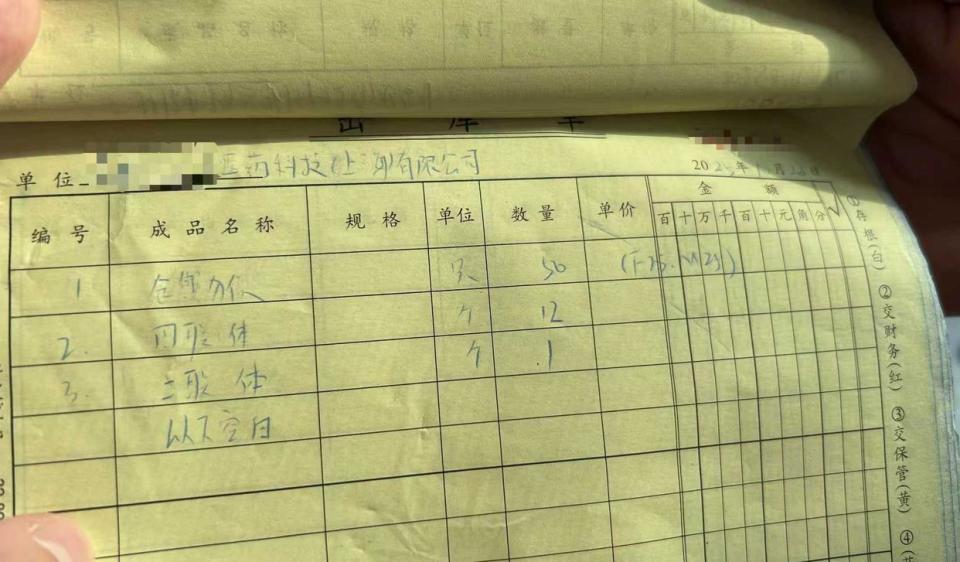 出库单
单位 医药科技(上海)有限公司
编号 成品名称 规格 单位 数量 单价 金额
百十万千百十元角分 √
1 只 50
2. 四联体 个 12
3. 二联体 个 1
以下空白
①存根(白)
②交财务(红)
③交保管(黄)
④